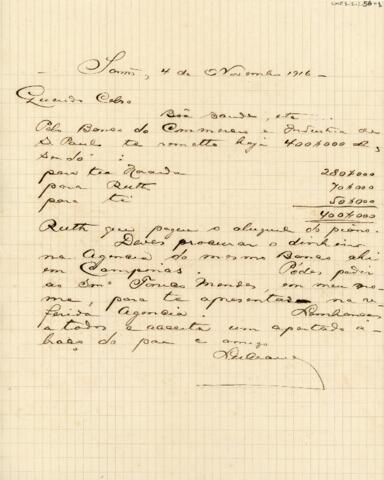 4 de Novembro 1916 -
Querido Celso
Bôa saude, etc...
Pelo Banco do Commercio e Industria de
S. Paulo te remetto hoje 400$000 Rs,
sendo:
para tia 280$000
para Ruth 70$000
para ti 50$000
400$000
Ruth que pague o aluguel do piano.
Deves procurar o dinheiro
na Agencia do mesmo Banco ahi
em Campinas. Pódes pedir
ao Snr. Mendes, em meu no-
me, para te apresentar na re-
ferida Agencia. Lembranças
a todos e acceita um apertado a-
braço do pae e amigo